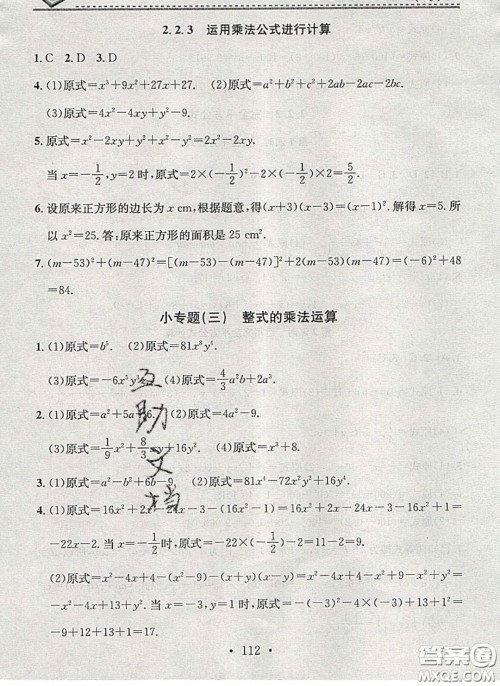 2.2.3 运用乘法公式进行计算
1.C 2.D 3.D
4.(1)原式=x³+9x²+27x+27. (2)原式=a²+b²+c²+2ab-2ac-2bc.
(3)原式=4x²-4xy+y²-9.
5.原式=x²-2xy+y²+x²-y²=2x²-2xy.
当x=-1/2,y=2时,原式=2×(-1/2)²-2×(-1/2)×2=5/2.
6.设原来正方形的边长为x cm,根据题意,得(x+3)(x-3)=(x-1)².解得x=5.所
以x²=25.答:原来正方形的面积是25 cm².
7.(m-53)²+(m-47)²=[(m-53)-(m-47)]²+2(m-53)(m-47)=(-6)²+48
=84.
小专题(三) 整式的乘法运算
1.(1)原式=b⁵. (2)原式=81x⁸y⁴.
(3)原式=-6x⁵y (4)原式=4/3a²b+2a³.
2.(1)原式=a²+5a+6. (2)原式=4a²-9.
(3)原式=1/9x²+8/3xy+16y². (4)原式=x³+8.
3.(1)原式=a²-b²+6b-9. (2)原式=81x⁴-72x²y²+16y⁴.
4.(1)原式=16x²+2x-24x-3-(16x²-1)=16x²+2x-24x-3-16x²+1=
-22x-2.当x=-1/2时,原式=-22×(-1/2)-2=11-2=9.
(2)原式=x²-4x+4-(x²-9)-(x²-4)=x²-4x+4-x²+9-x²+4=
-x²-4x+13+y².当x=-3,y=-1时,原式=-(-3)²-4×(-3)+13+(-1)²=
-9+12+13+1=17.
·112·
互助文档
答案圈
MXQE.COM